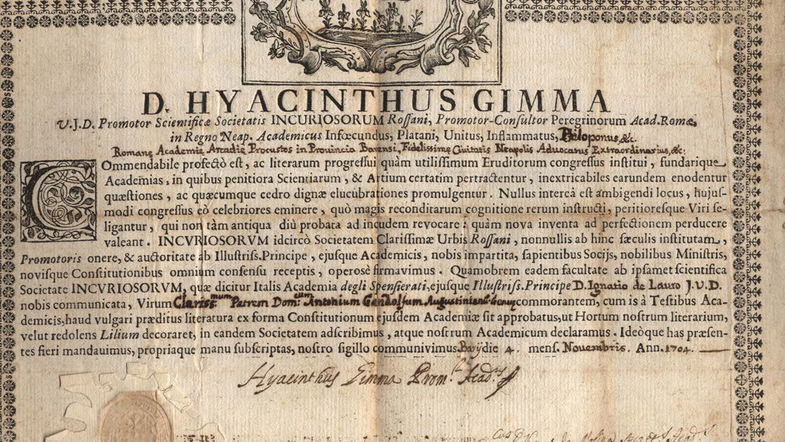 D. HYACINTHUS GIMMA
U.J.D. Promotor Scientificæ Societatis INCURIOSORUM Rossani, Promotor-Consultor Peregrinorum Acad. Romæ,
in Regno Neap. Academicus Infœcundus, Platani, Unitus, Inflammatus, Philoponus &c.
Romanæ Academiæ Arcadiæ Procustos in Provincia Barensi, Fidelissimæ Civitatis Neapolis Advocatus Extraordinarius, &c.
COmmendabile profectò est, ac literarum progressui quàm utilissimum Eruditorum congressus institui, fundarique
Academias, in quibus penitiora Scientiarum, & Artium certatim pertractentur, inextricabiles earundem enodentur
quæstiones, ac quæcumque cedro dignæ elucubrationes promulgentur. Nullus intereà est ambigendi locus, hujus-
modi congressus eò celebriores eminere, quò magis reconditarum cognitione rerum instructi, peritioresque Viri se-
ligantur, qui non tàm antiqua diù probata ad incudem revocare; quàm nova inventa ad perfectionem perducere
valeant. INCURIOSORVM idcircò Societatem Clarissimæ Urbis Rossani, nonnullis ab hinc sæculis institutam,
Promotoris onere, & auctoritate ab Illustris. Principe, ejusque Academicis, nobis impartita, sapientibus Socijs, nobilibus Ministris,
novisque Constitutionibus omnium consensu receptis, operosè firmavimus. Quamobrem eadem facultate ab ipsamet scientifica
Societate INCURIOSORUM, quæ dicitur Italis Academia degli Spensierati, ejusque Illustriss. Principe D. Ignatio de Lauro J.U.D.
nobis communicata, Virum Clariss.mum Patrem Dom.um Antonium commorantem, cum is à Testibus Aca-
demicis, haud vulgari præditus literatura ex forma Constitutionum ejusdem Academiæ sit approbatus, ut Hortum nostrum literarium,
velut redolens Lilium decoraret, in eandem Societatem adscribimus, atque nostrum Academicum declaramus. Ideòque has præsen-
tes fieri mandauimus, propriaque manu subscriptas, nostro sigillo communivimus. die 4. mens. Novembris. Ann. 1704.
Hyacinthus Gimma Prom.